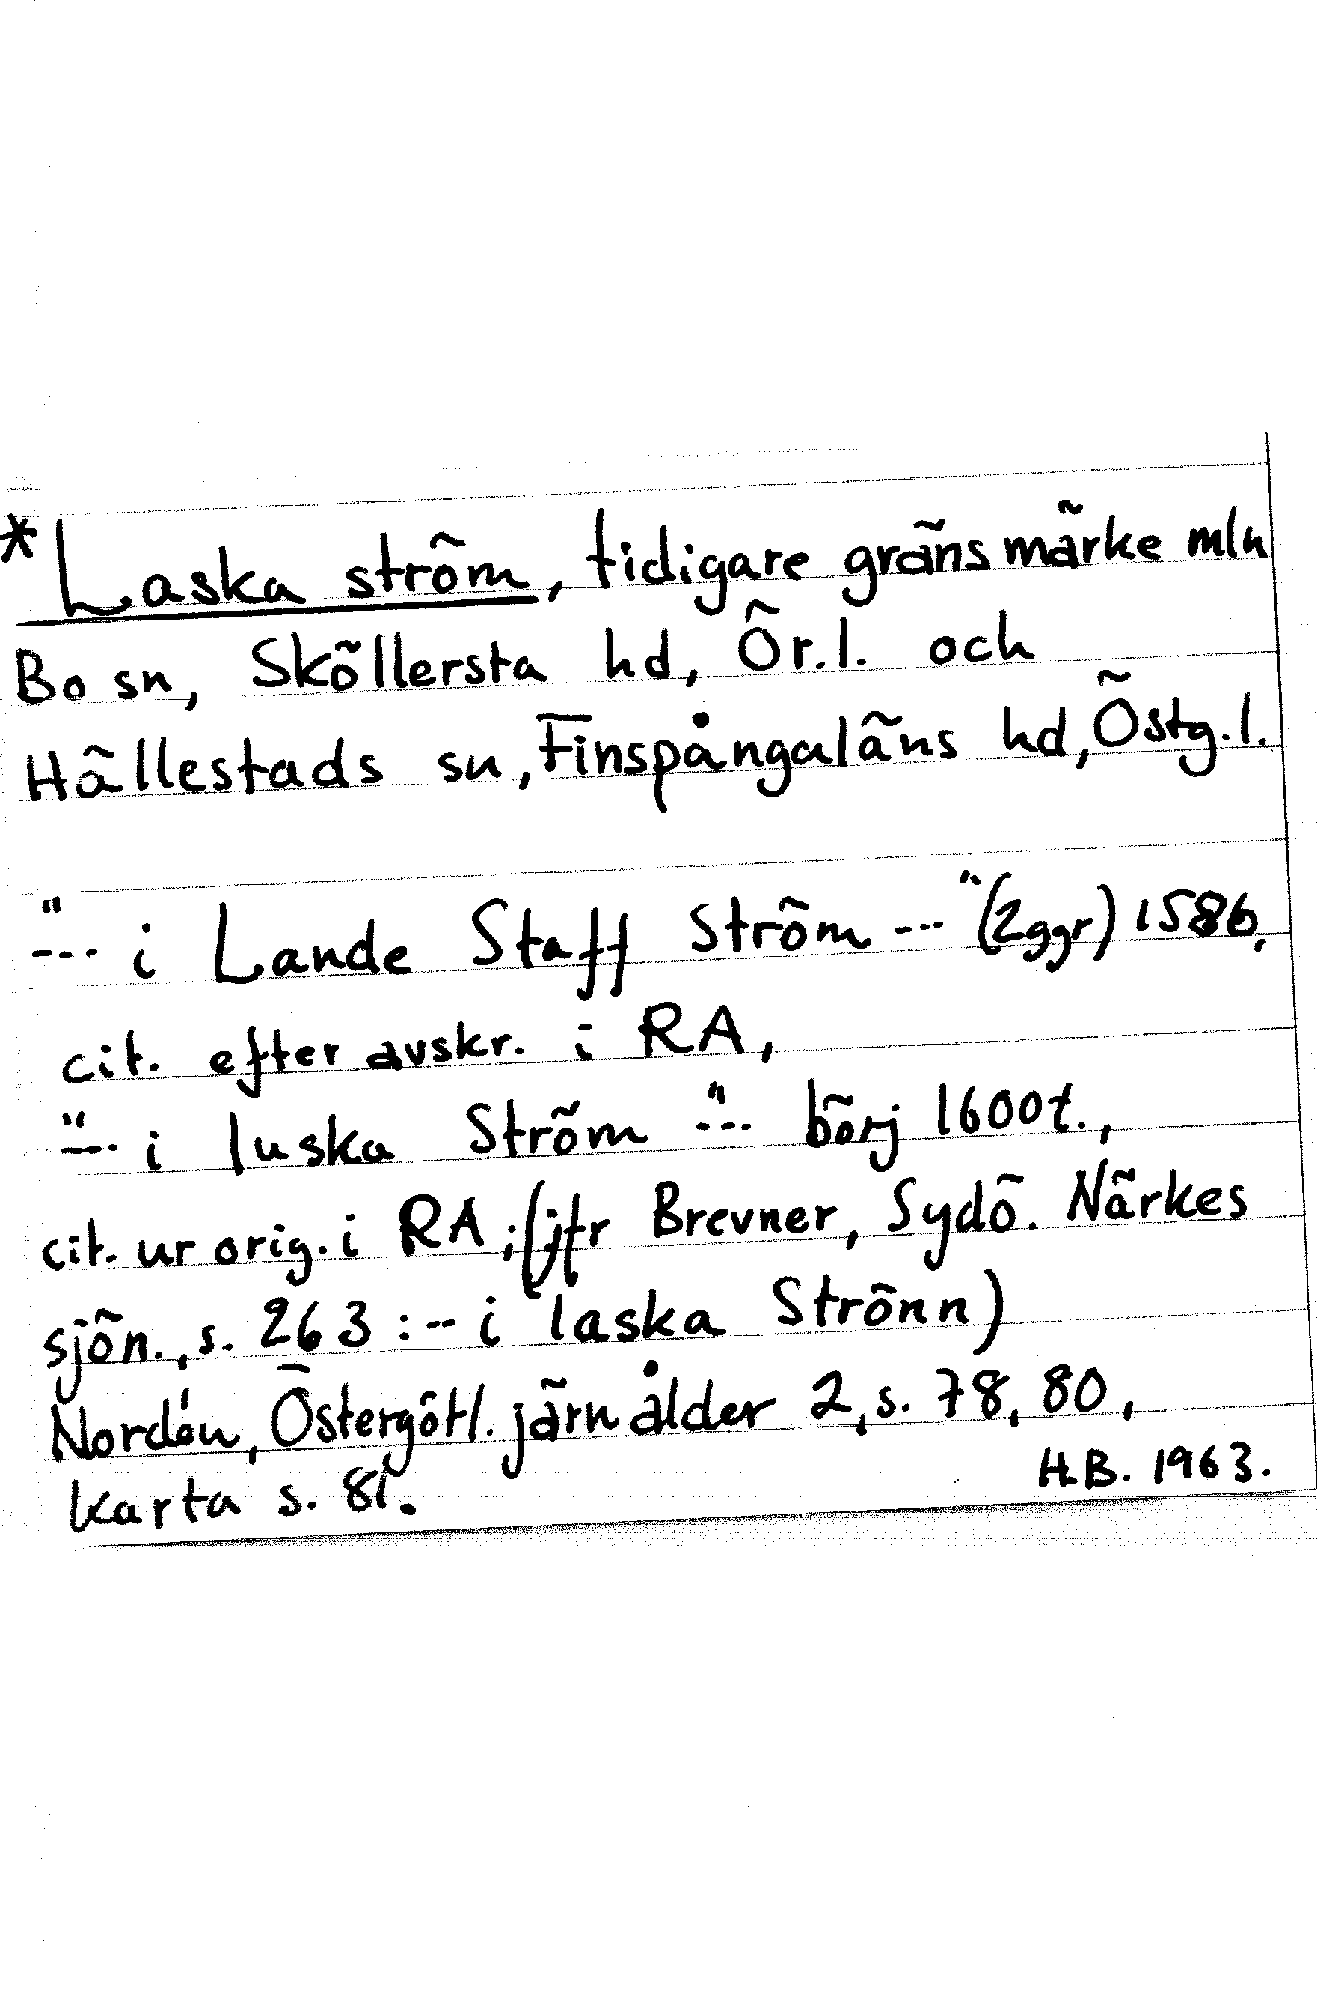 *Laska ström, tidigare gränsmärke mln
Bo sn, Sköllersta hd, Ör.l. och
Hällestads sn, Finspångaläns hd, Östg.l.
"--- i Lande Staff Ström ---" (2ggr) 1586,
cit. efter avskr. i RA,
"--- i luska Ström ---" börj 1600t.,
cit. ur orig. i RA; (jfr Brevner, Sydö. Närkes
sjön., s. 263 :-- i laska Strönn)
Nordén, Östergötl. järnålder 2, s. 78, 80,
karta s. 81.
H.B. 1963.